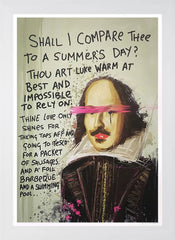 SHALL I COMPARE THEE
TO A SUMMER'S DAY?
THOU ART LUKE WARM AT
BEST AND
IMPOSSIBLE
TO RELY ON.
THINE LOVE ONLY
SHINES FOR
TAKING TAPS AFF AND
GOING TO TESCO
FOR A PACKET
OF SAUSAGES.
AND A FOIL
BARBEQUE
AND A SWIMMING
POOL...